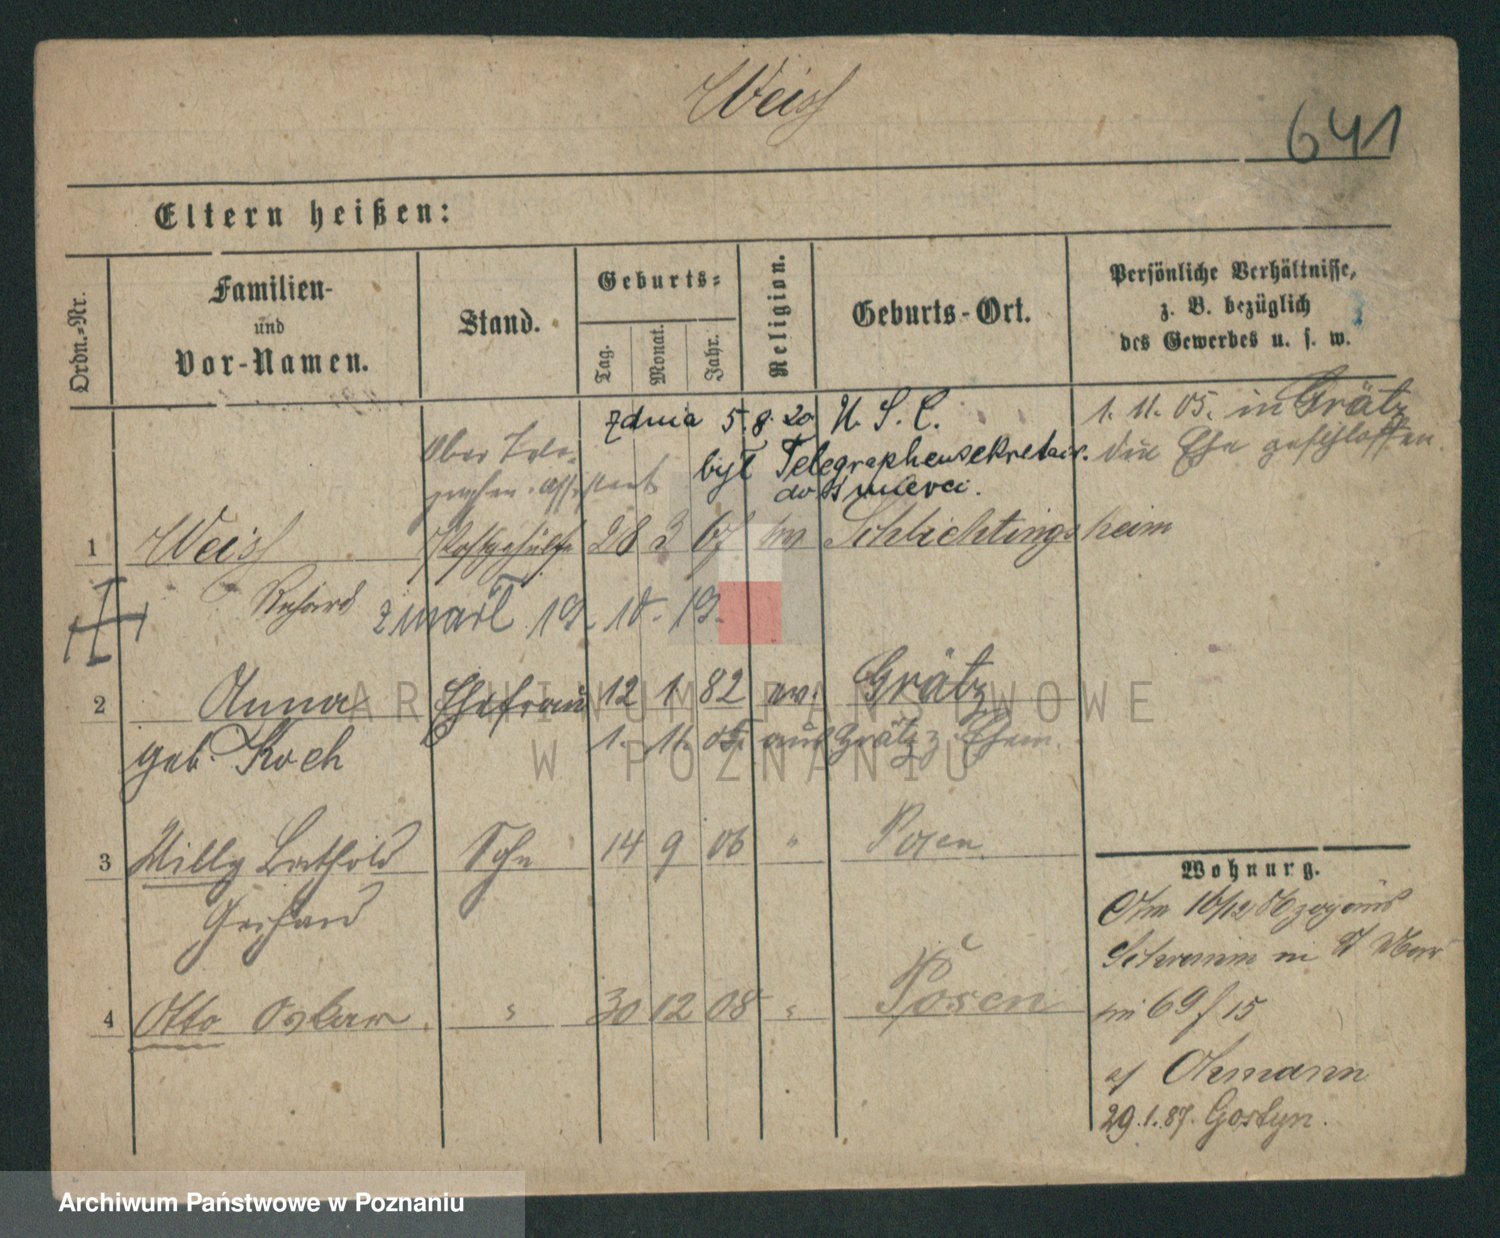 Weiss
641
Eltern heißen:
Ordn.-Nr.
Familien-
und
Vor-Namen.
Stand.
Geburts-
Tag.
Monat.
Jahr.
Religion.
Geburts-Ort.
Persönliche Verhältnisse,
z. B. bezüglich
des Gewerbes u. s. w.
z dnia 5.8.20 U. S. C.
był Telegraphensekretair.
do śmierci.
1. 11. 05. in Grätz
die Ehe geschlossen.
Ober Tele-
graphen-Assistent
1 Weiss Postgehülfe 28 3 67 ev Schlichtingsheim
Richard zmarł 19. 10. 19.
2 Anna Ehefrau 12 1 82 ev. Grätz
geb. Koch 1. 11. 05. aus Grätz z. Ehem.
3 Willy Berthold Sohn 14 9 06 " Posen
Gerhard
4 Otto Oskar " 30 12 08 " Posen
Wohnung.
Am 16/12
Schwerin
69 f 15
Ahmann
29.1.87. Gostyn.
ARCHIWUM PAŃSTWOWE
W POZNANIU
Archiwum Państwowe w Poznaniu